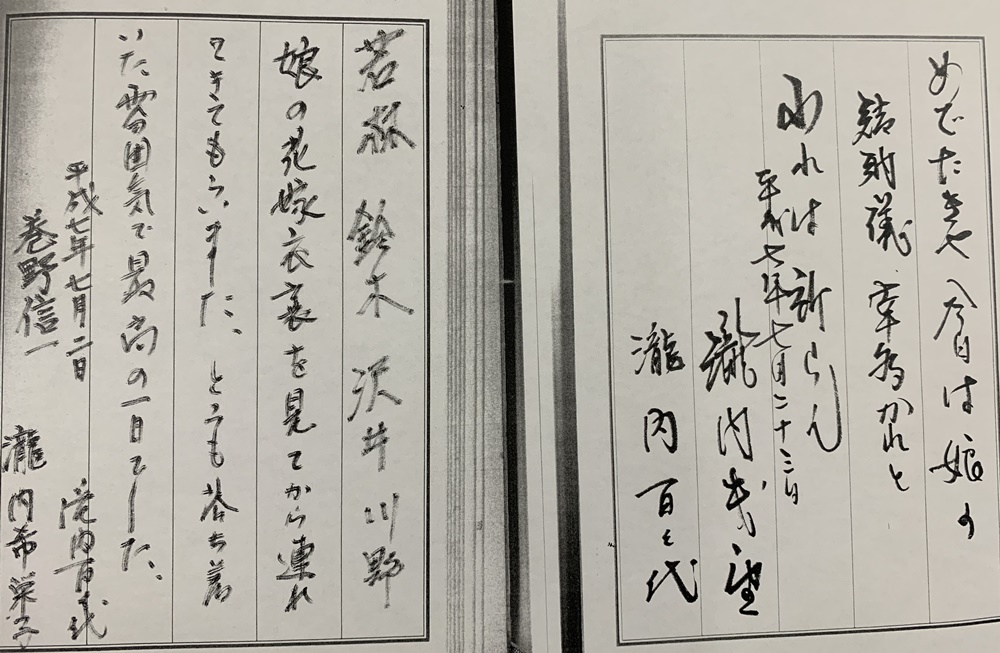 めでたきや今日は娘の
結納儀 幸多かれと
われは祈らん
平成七年七月二十三日
瀧内
瀧内百々代
若松 鈴木 沢井 川野
娘の花嫁衣裳を見てから連れ
てきてもらいました、とても落ち着
いた雰囲気で最高の一日でした、
平成七年七月二日
巻野信一
瀧内百々代
瀧内希栄子